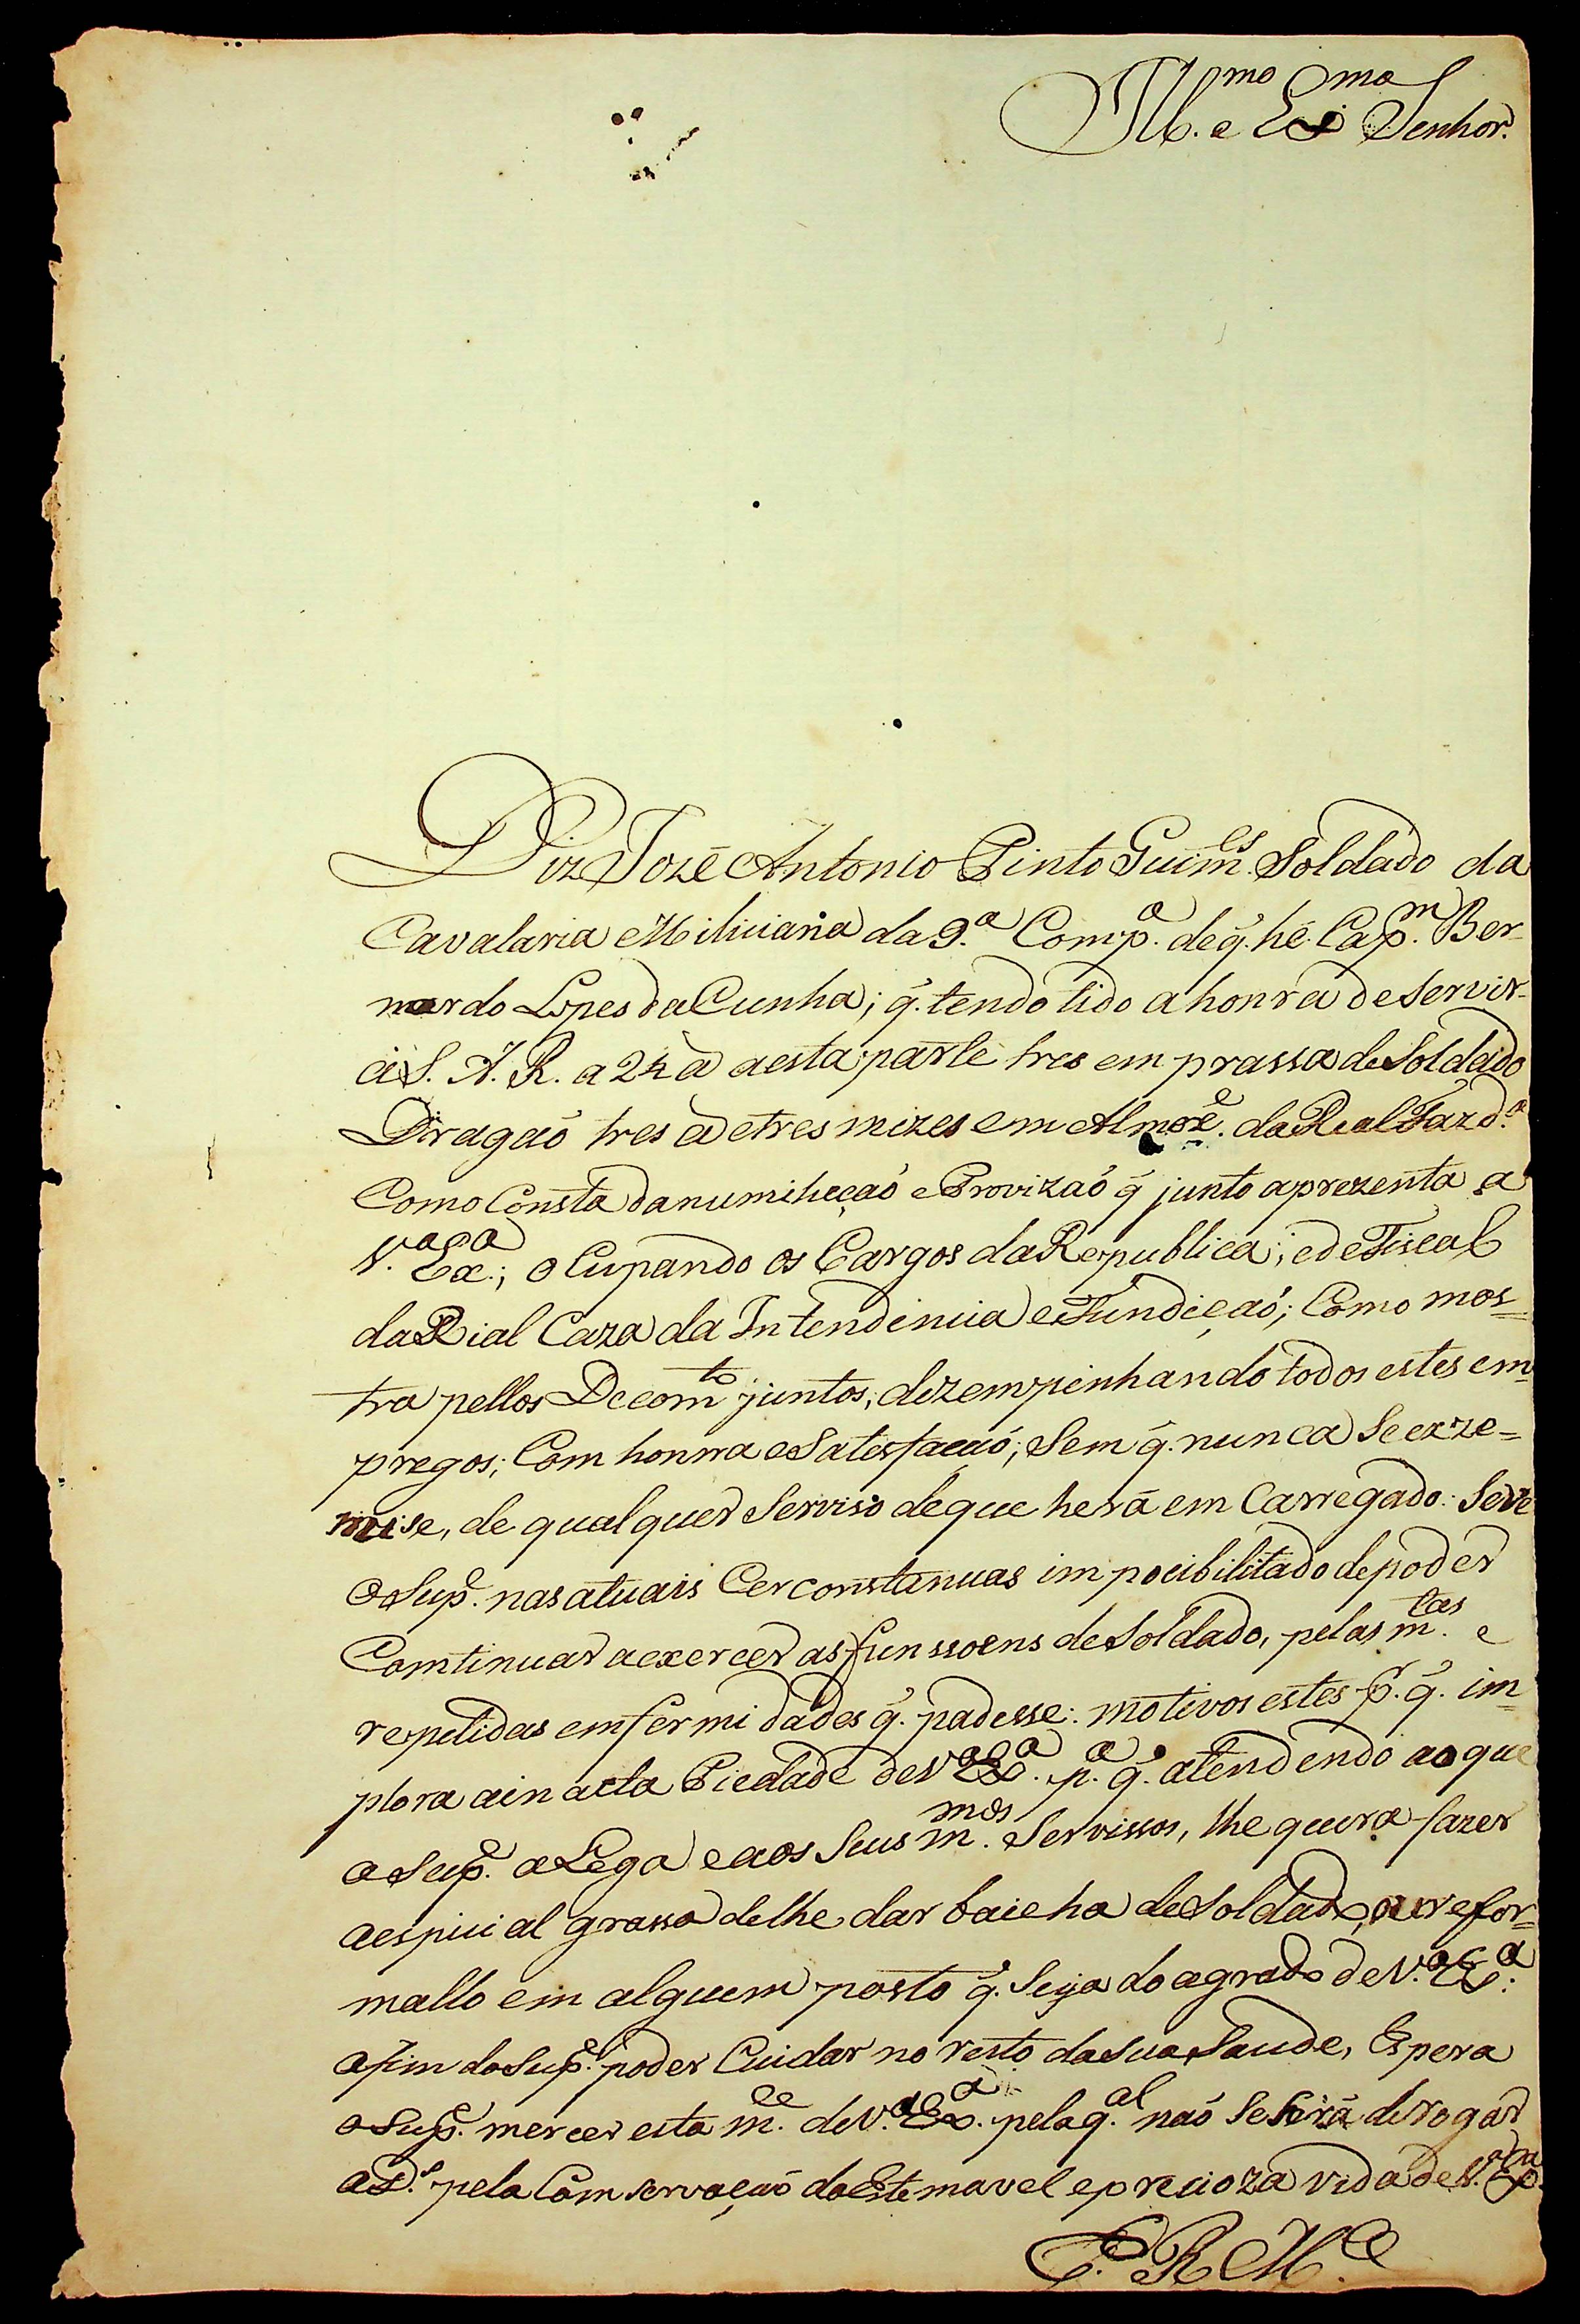 Ill.mo e Ex.mo Senhor.
Diz Jozé Antonio Pinto Guim.es Soldado da
Cavalaria Miliciana da 9.a Comp.a de q̃. hé Cap.m Ber-
nardo Lopes da Cunha; q̃. tendo tido a honra de servir-
a S. A. R. a 24 a aesta parte tres em prassa de Soldado
Dragaó tres a e tres mizes em Almox.e da Real Fazd.a
Como Consta da numiheçaó e Provizaó q̃ junto aprezenta a
V.a Ex.a; o Cupando os Cargos da Republica; e de Fiscal
da Rial Caza da Intendencia e Fundiçaó; Como mos=
tra pellos Decom.to juntos; dezempinhando todos estes em
pregos; Com honrra e Satesfaçaó; Sem q̃. nunca Se exze=
mise, de qualquer Serviso de que herá em Carregado: Seve
o Sup.e nas atuais Cerconstancias impocibilitado de poder
Comtinuar a exercer as funssoens de Soldado, pelas m.tas e
repetidas emfermidades q̃. padesse: motivos estes p.r q̃. im=
plora a in acta Piedade de V.a Ex.a p.a q̃. atendendo ao que
o Sup.e aLega e aos Seus m.mos Servissos, lhe queira fazer
a espicial grassa de lhe dar baicha de Soldado, ou refor=
mallo em alguem posto q̃. Seja do agrado de V.a Ex.a:
afim do Sup.e poder Cuidar no resto da Sua Saude, Espera
o Sup.e mercer esta m.ce de V.a Ex.a pela q.al naó Seserá de rogar
a D.s pela Comservaçaó da Estemavel e precioza vida de V.a Ex.a
E. R. M.ce